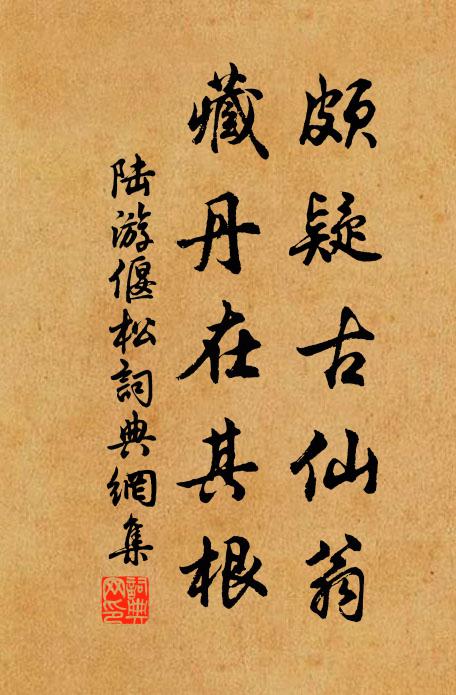 頗疑古仙翁
藏丹在其根
陆游偃松詞典網集
詞典网印